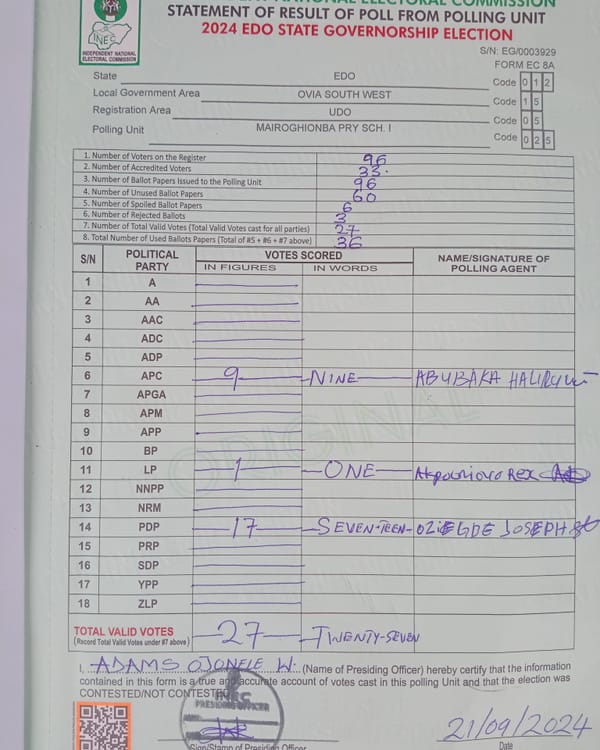 INDEPENDENT NATIONAL ELECTORAL COMMISSION
STATEMENT OF RESULT OF POLL FROM POLLING UNIT
2024 EDO STATE GOVERNORSHIP ELECTION
INEC
INDEPENDENT NATIONAL
ELECTORAL COMMISSION
S/N: EG/0003929
FORM EC 8A
State EDO Code 0 1 2
Local Government Area OVIA SOUTH WEST Code 1 5
Registration Area UDO Code 0 5
Polling Unit MAIROGHIONBA PRY SCH. I Code 0 2 5
1. Number of Voters on the Register 96
2. Number of Accredited Voters 33.
3. Number of Ballot Papers Issued to the Polling Unit 96
4. Number of Unused Ballot Papers 60
5. Number of Spoiled Ballot Papers 6
6. Number of Rejected Ballots 3
7. Number of Total Valid Votes (Total Valid Votes cast for all parties) 27
8. Total Number of Used Ballots Papers (Total of #5 + #6 + #7 above) 36
S/N POLITICAL PARTY VOTES SCORED NAME/SIGNATURE OF POLLING AGENT
IN FIGURES IN WORDS
1 A
2 AA
3 AAC
4 ADC
5 ADP
6 APC 9 NINE ABUBAKA
7 APGA
8 APM
9 APP
10 BP
11 LP 1 ONE Rex
12 NNPP
13 NRM
14 PDP 17 SEVEN-TEEN JOSEPH
15 PRP
16 SDP
17 YPP
18 ZLP
ORIGINAL
TOTAL VALID VOTES 27 TWENTY-SEVEN
(Record Total Valid Votes under #7 above)
I, ADAMS OJONELE W. (Name of Presiding Officer) hereby certify that the information
contained in this form is a true and accurate account of votes cast in this polling Unit and that the election was
CONTESTED/NOT CONTESTED
INEC
PRESIDING OFFICER
21/09/2024
Sign/Stamp of Presiding Officer Date